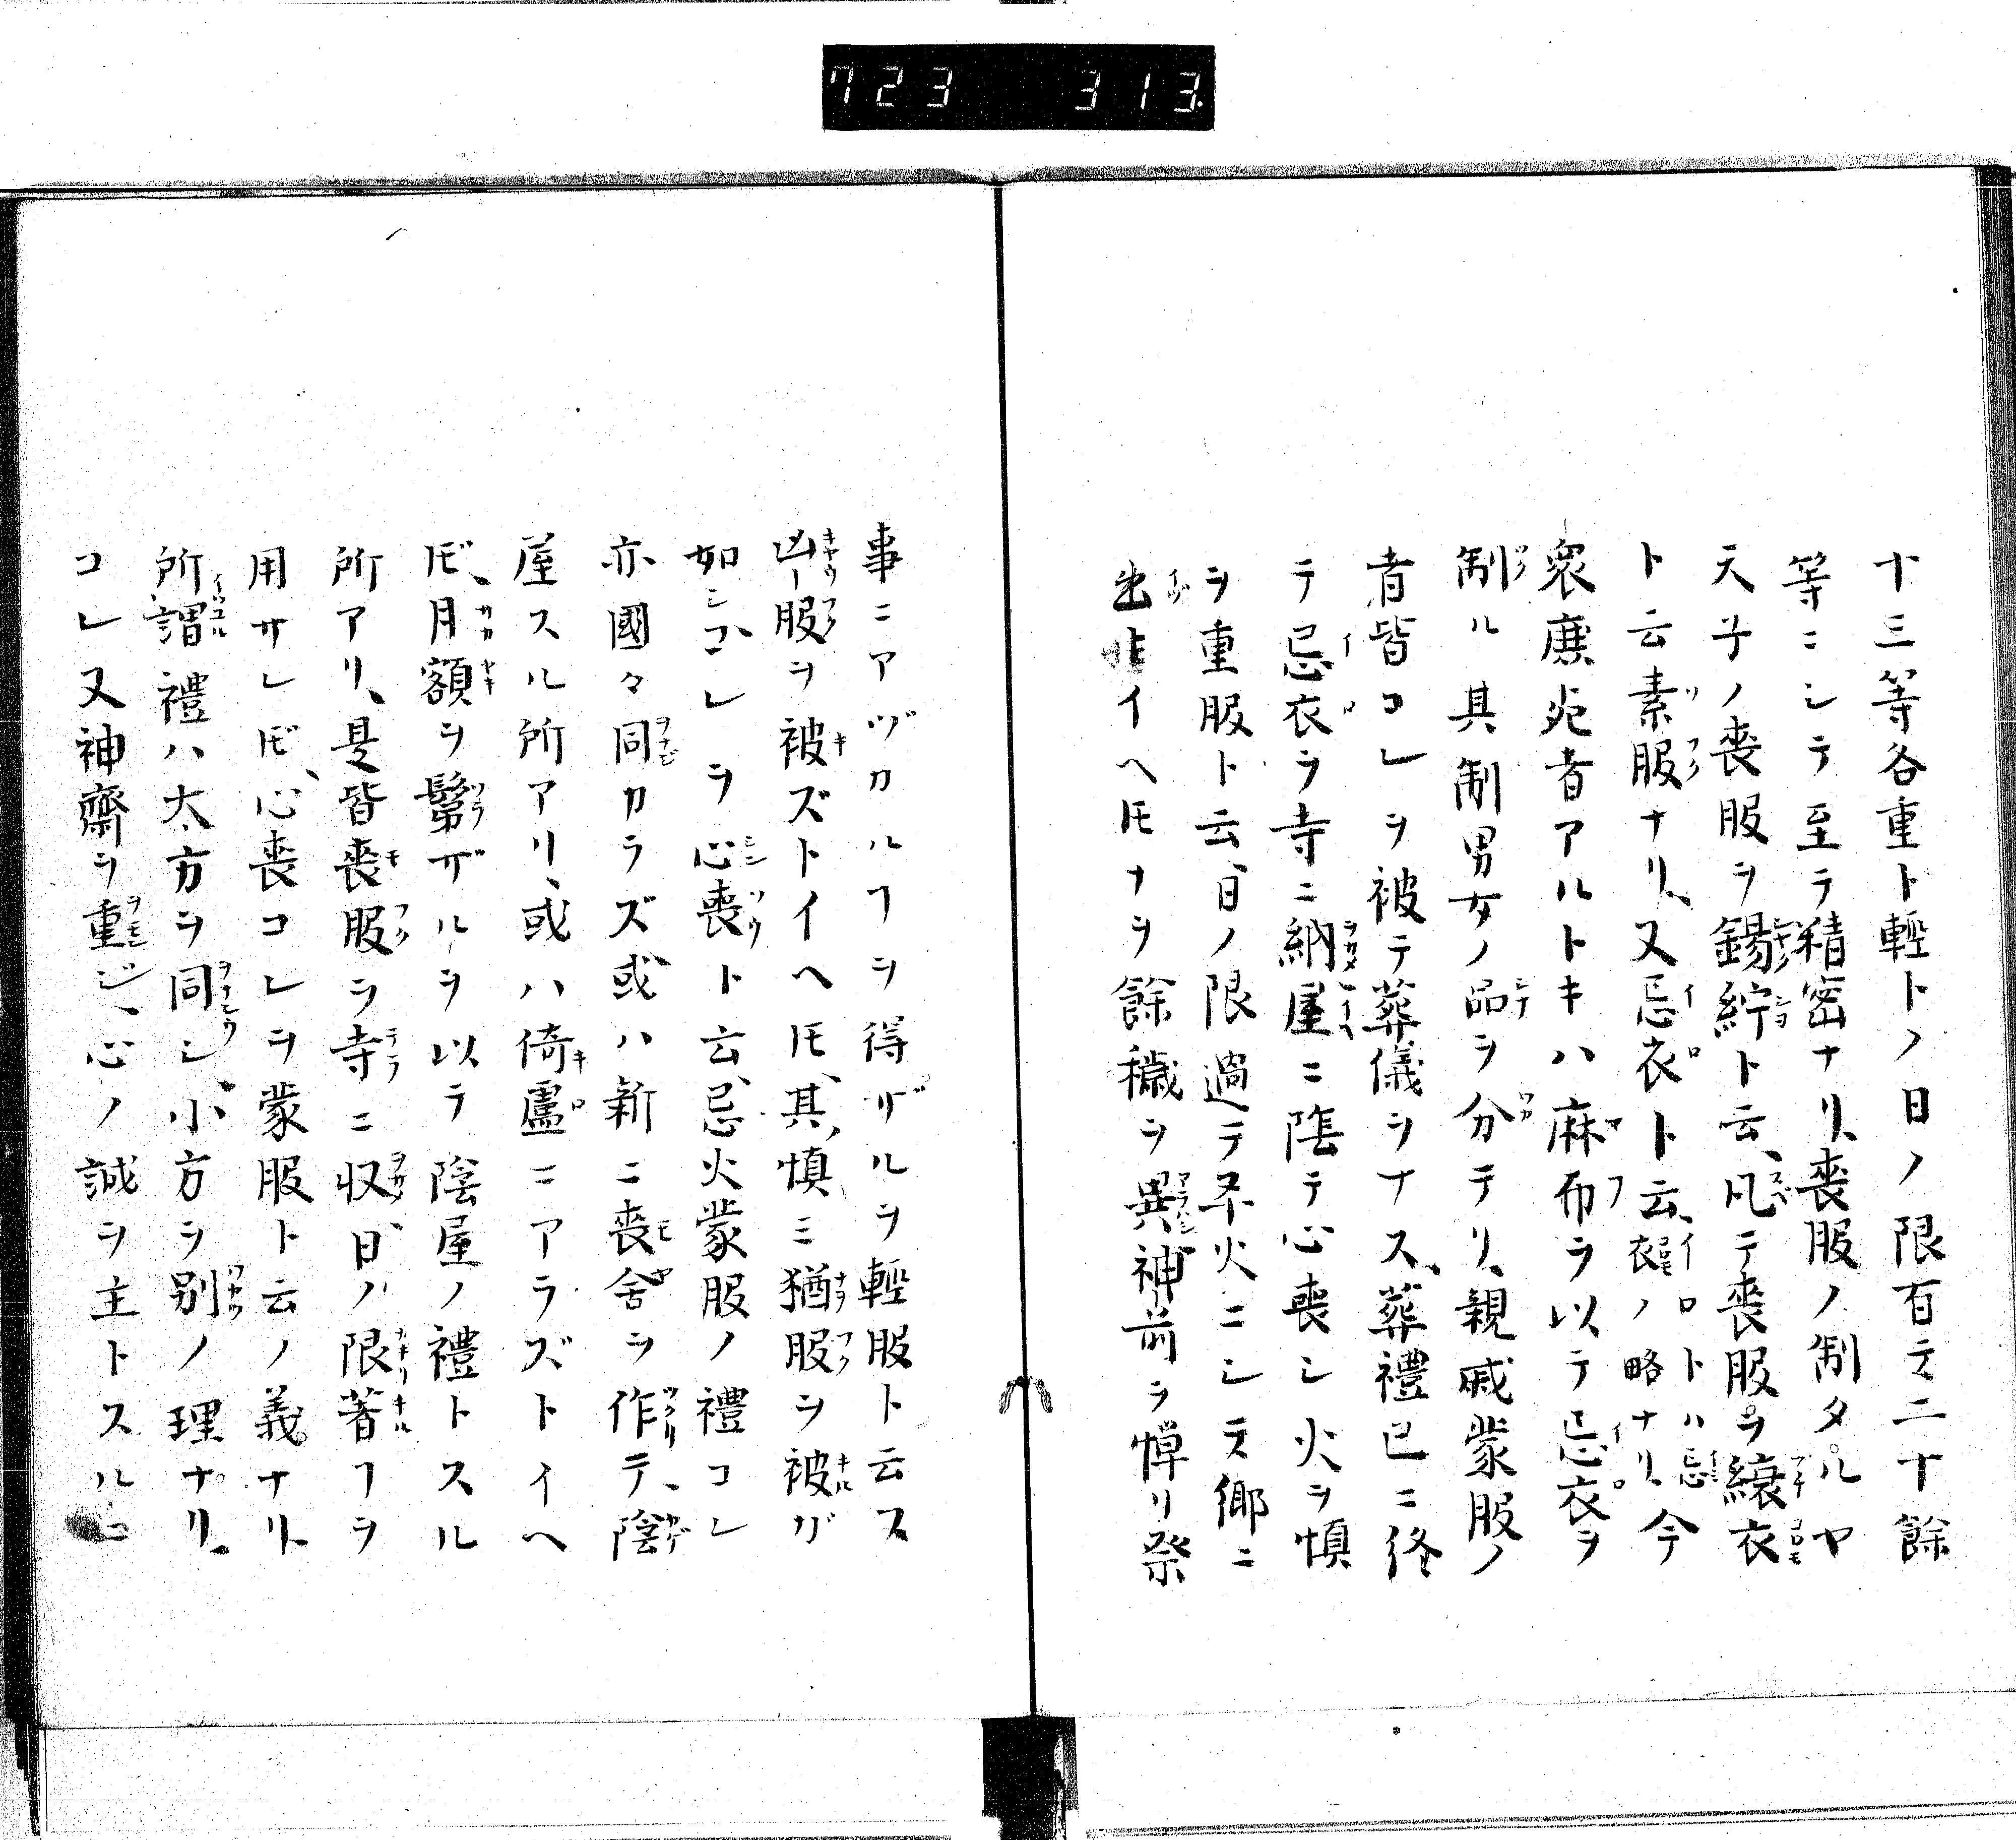 723 313
十三等各重ト輕トノ日ノ限百六二十餘
等ニシテ至テ精密ナリ、喪服ノ制タルヤ
天子ノ喪服ヲ錫紵ト云、凡テ喪服ヲ縗衣
ト云素服ナリ、又忌衣ト云、イロトハ忌衣ノ略ナリ、今
衆庶死者アルトキハ麻布ヲ以テ忌衣ヲ
制ル其制男女ノ品ヲ分テリ、親戚蒙服ノ
者皆コレヲ被テ葬儀ヲナス、葬禮已ニ終
テ忌衣ヲ寺ニ納屋ニ陰テ心喪シ火ヲ慎
ヲ重服ト云、日ノ限過テ平火ニシテ郷ニ
出ヅトイヘ𪜈ナヲ餘穢ヲ異神前ヲ憚リ祭
事ニアヅカルヿヲ得ザルヲ輕服ト云ス
凶服ヲ被ズトイヘ𪜈、其慎ミ猶服ヲ被ガ
如シ、コレヲ心喪ト云、忌火蒙服ノ禮コレ
亦國々同カラズ或ハ新ニ喪舍ヲ作テ、陰
屋スル所アリ、或ハ倚廬ニアラズトイヘ
𪜈、月額ヲ鬀ザルヲ以テ陰屋ノ禮トスル
所アリ、是皆喪服ヲ寺ニ収、日ノ限著ヿヲ
用サレ𪜈、心喪コレヲ蒙服ト云ノ義ナリ、
所謂禮ハ大方ヲ同シ、小方ヲ別ノ理ナリ、
コレ又神齋ヲ重ジ、心ノ誠ヲ主トスル